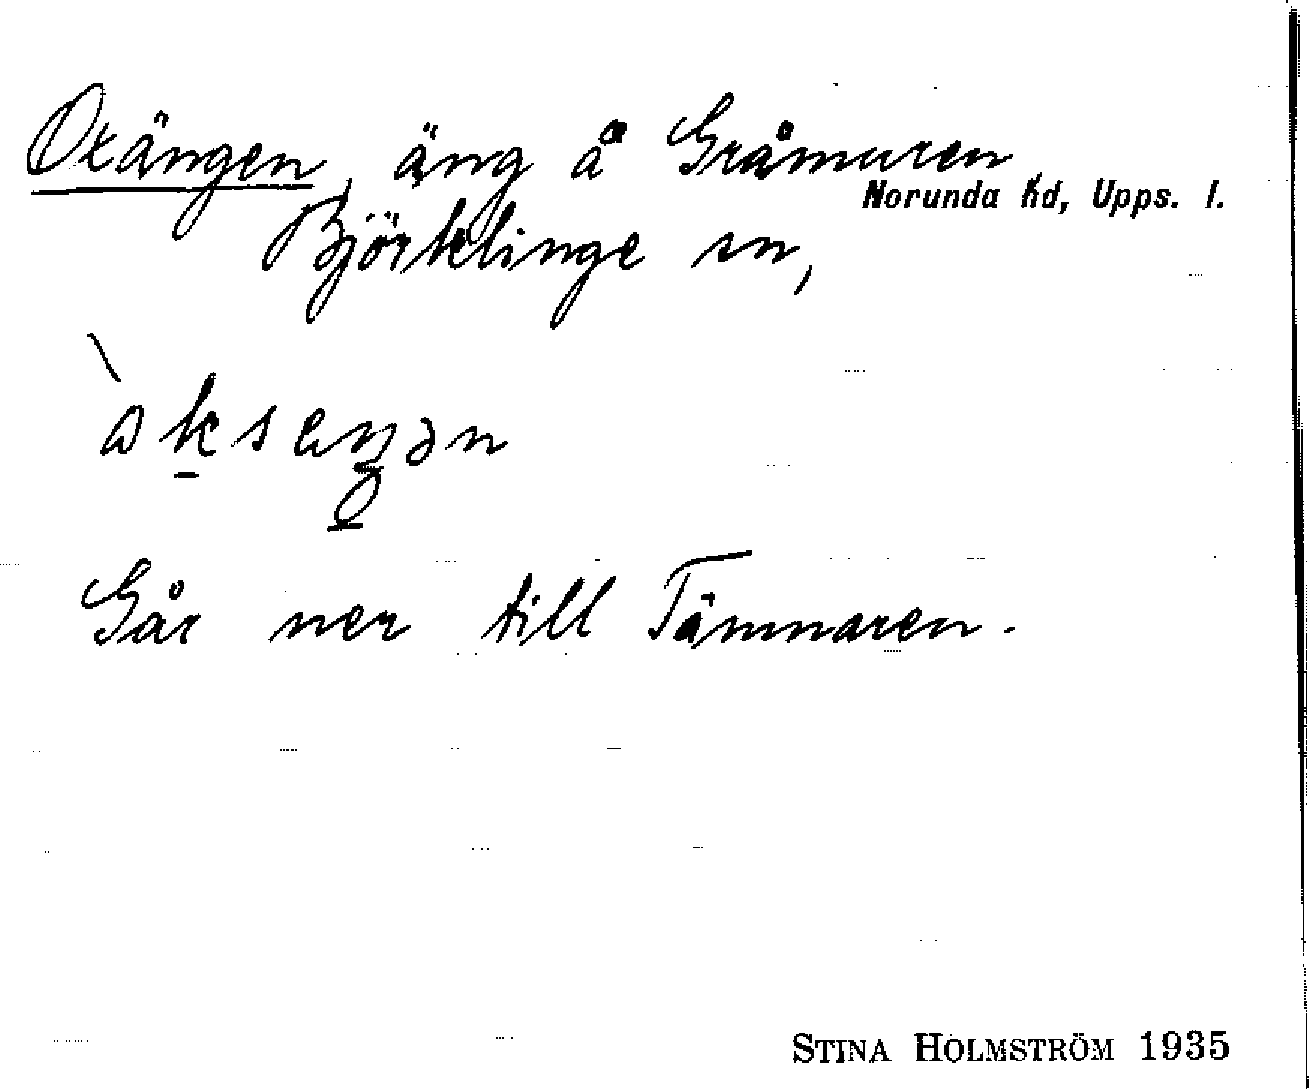 Oxängen, äng å Gråmuren,
Björklinge sn,
Norunda hd, Upps. l.
`akseŋən
Går ner till Tämnaren.
STINA HOLMSTRÖM 1935